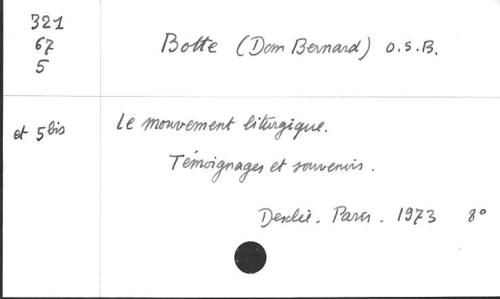 321
67
5
Botte (Dom Bernard) O.S.B.
et 5bis
Le mouvement liturgique.
Témoignages et souvenirs.
Desclée. Paris. 1973 8°